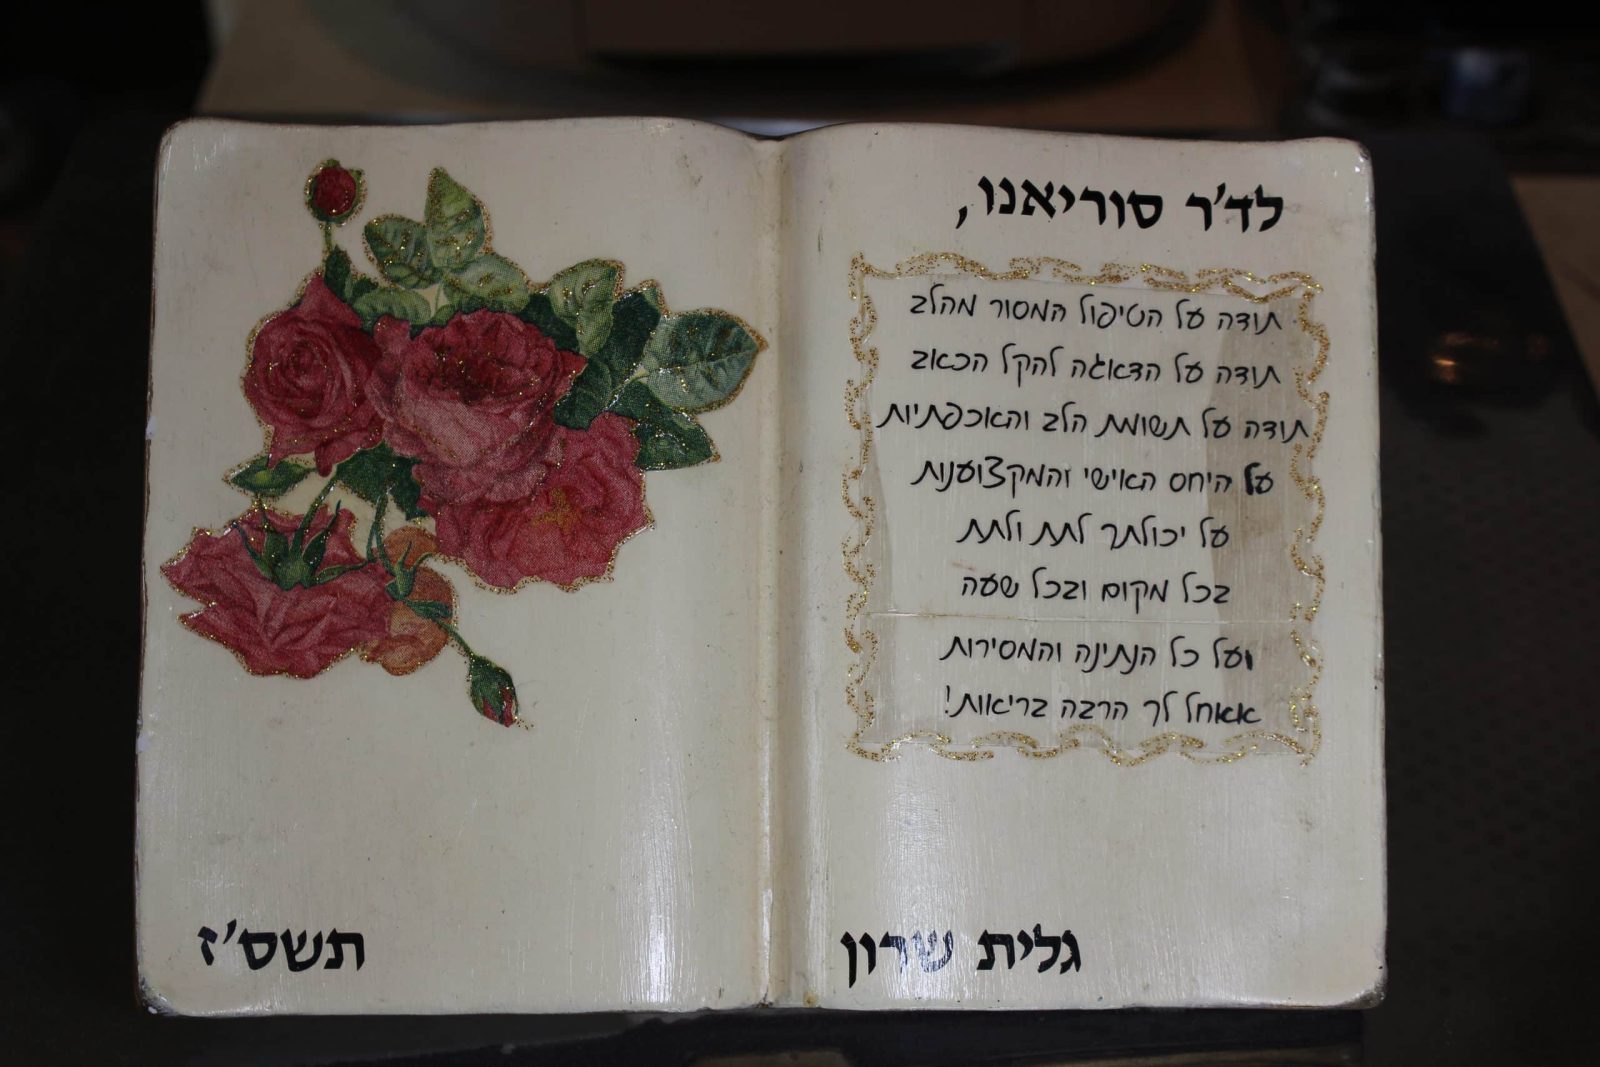 לד'ר סוריאנו,
תודה על הטיפול המסור מהלב
תודה על הדאגה להקל הכאב
תודה על תשומת הלב והאכפתיות
על היחס האישי והמקצוענות
על יכולתך לתת ולתת
בכל מקום ובכל שעה
ועל כל הנתינה והמסירות
אאחל לך הרבה בריאות!
גלית שרון
תשס'ז